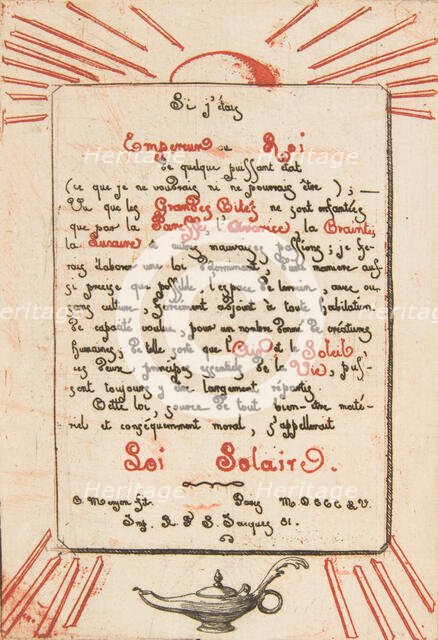 Si j'étais
Empereur ou Roi
de quelque puissant état
(ce que je ne voudrais ni ne pourrais être) ; —
Vu que les Grandes Cités ne sont enfantées
que par la Paresse, l'Avarice, la Crainte,
la Luxure et autres mauvaises passions ; je fe-
rais élaborer une loi déterminant, d'une manière aus-
si précise que possible l'espace de terrain, avec ou
sans culture forcément adjoint à toute habitation
de capacité voulue, pour un nombre donné de créatures
humaines ; de telle sorte que l'Air et le Soleil
ces deux principes essentiels de la Vie, puis-
sent toujours y être largement répartis.
Cette loi, source de tout bien-être maté-
riel et conséquemment moral, s'appellerait
Loi Solaire.
C. Meryon fit. Paris MDCCCLV.
Imp. R. N. S. Jacques 81.
Heritage
Heritage
Heritage
Heritage
Heritage